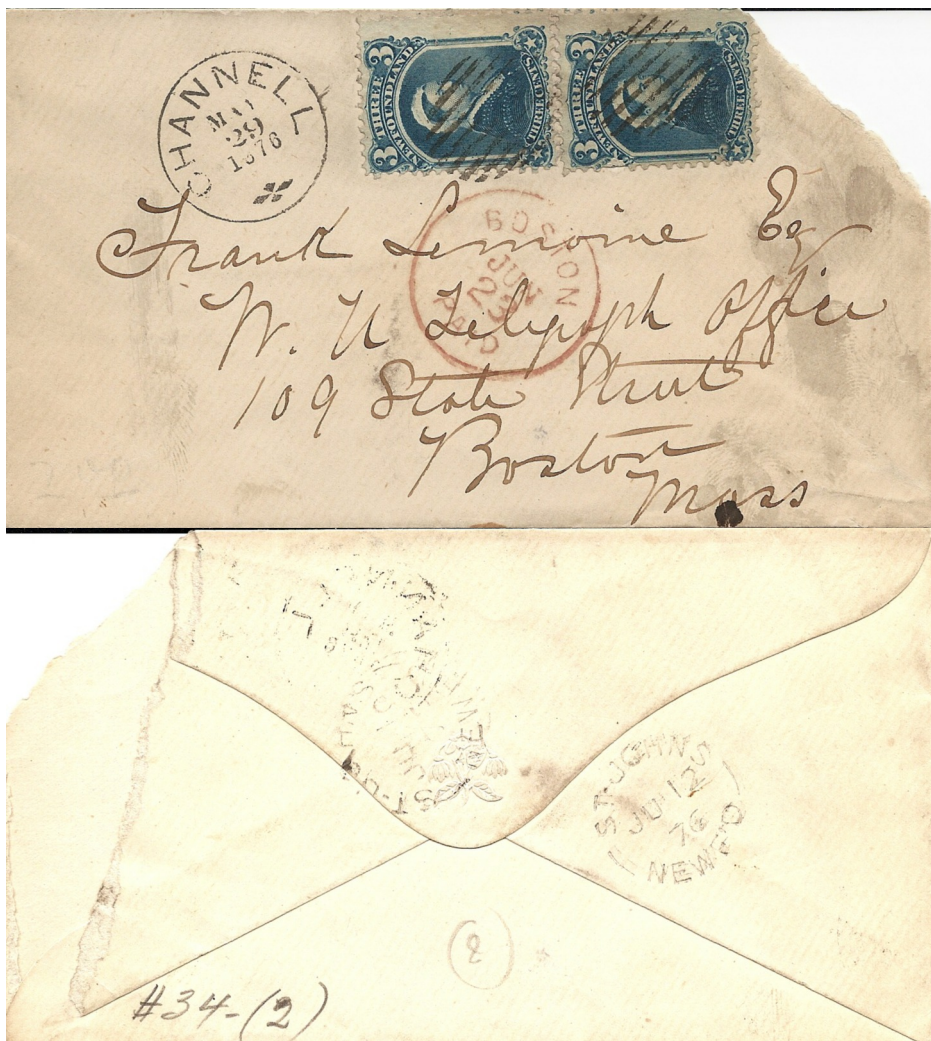 CHANNELL
MAY
29
1876
3 THREE 3
NEWFOUNDLAND
THREE CENTS
3 THREE 3
NEWFOUNDLAND
THREE CENTS
BOSTON
JUN
23
PAID
Frank Lemoine Esq
W. U Telegraph Office
109 State Street
Boston
Mass
ST. JOHN'S
JU 12
76
NEWFD
2
#34-(2)